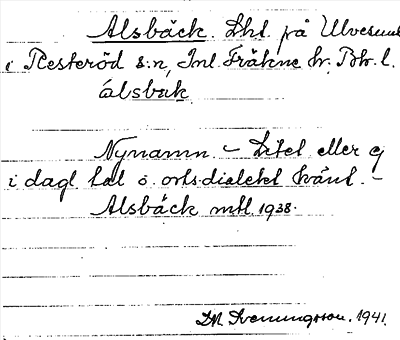 Alsbäck. Lht. på Ulvesund
i Resteröd s:n, Inl. Fräkne hr. Boh. l.
álsbak
Nynamn. – Litet eller ej
i dagl. tal o. ortsdialekt känt. –
Alsbäck mtl 1938.
Svenungsson. 1941.